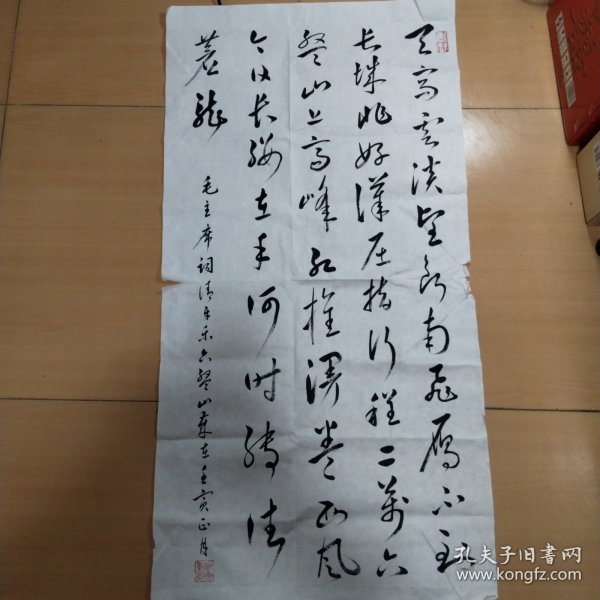 天高云淡望断南飞雁不到
长城非好汉屈指行程二万六
盘山上高峰红旗漫卷西风
今日长缨在手何时缚住
苍龙
毛主席词清平乐六盘山岁在壬寅正月
孔夫子旧书网
www.kongfz.com